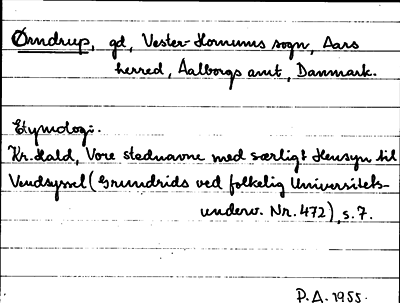 Ørndrup, gd, Vester-Hornums sogn, Aars
herred, Aalborgs amt, Danmark.
Etymologi.
Kr. Hald, Vore stednavne med særligt Hensyn til
Vendsyssel (Grundrids ved folkelig Universitets-
underv. Nr. 472), s. 7.
P.A. 1955.